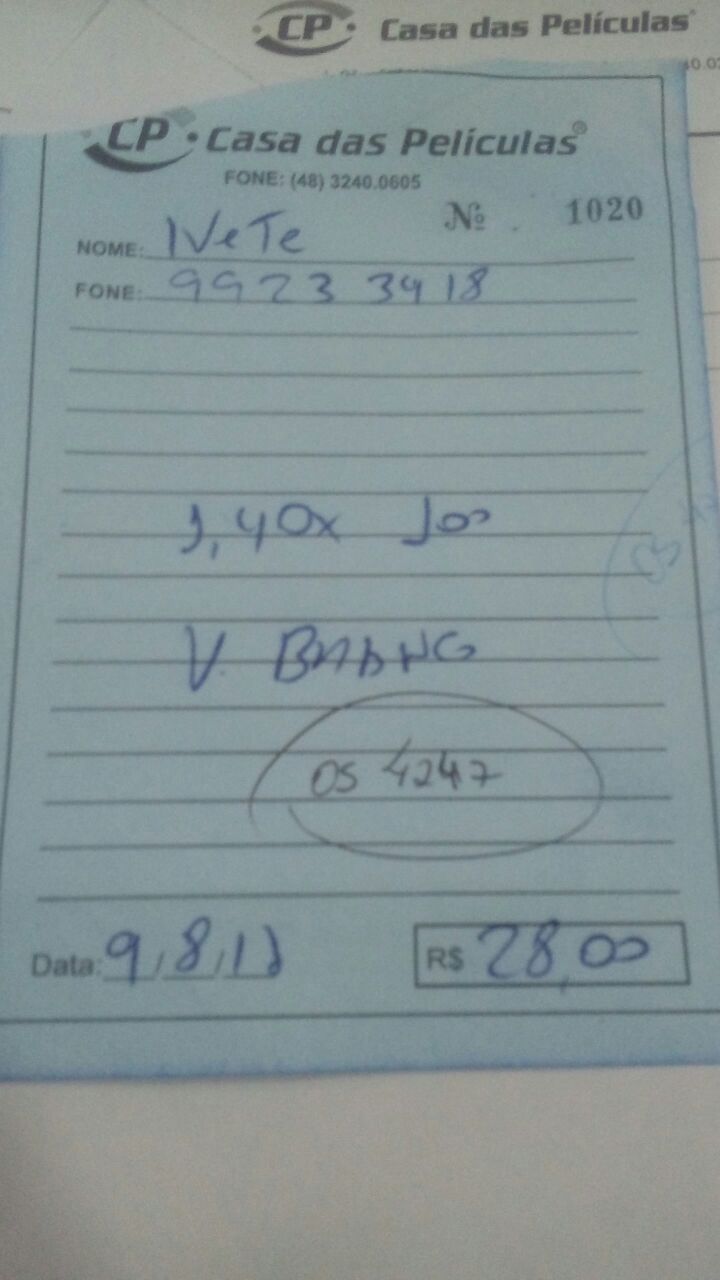 CP Casa das Películas
CP Casa das Películas®
FONE: (48) 3240.0605
Nº 1020
NOME: IVeTe
FONE: 9923 3418
1,40x 100
V.
OS 4247
Data: 9/8/
R$ 28,00